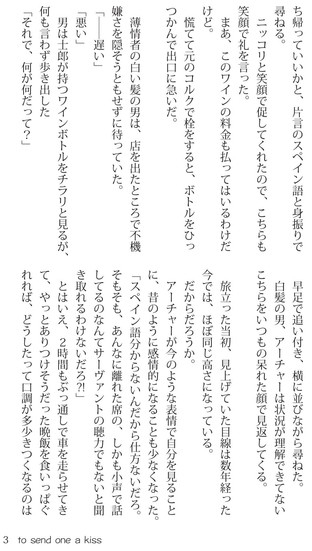 ち帰っていいかと、片言のスペイン語と身振りで
尋ねる。
ニッコリと笑顔で促してくれたので、こちらも
笑顔で礼を言った。
まあ、このワインの料金も払ってはいるわけだ
けど。
慌てて元のコルクで栓をすると、ボトルをひっ
つかんで出口に急いだ。
薄情者の白い髪の男は、店を出たところで不機
嫌さを隠そうともせずに待っていた。
「――遅い」
「悪い」
男は士郎が持つワインボトルをチラリと見るが、
何も言わず歩き出した
「それで、何が何だって?」
早足で追い付き、横に並びながら尋ねた。
白髪の男、アーチャーは状況が理解できてない
こちらをいつもの呆れた顔で見返してくる。
旅立った当初、見上げていた目線は数年経った
今では、ほぼ同じ高さになっている。
だからだろうか。
アーチャーが今のような表情で自分を見ること
に、昔のように感情的になることも少なくなった。
「スペイン語分からないんだから仕方ないだろ。
そもそも、あんなに離れた席の、しかも小声で話
してるのなんてサーヴァントの聴力でもないと聞
き取れるわけないだろ?!」
とはいえ、2時間もぶっ通しで車を走らせてき
て、やっとありつけそうだった晩飯を食いっぱぐ
れれば、どうしたって口調が多少きつくなるのは
3 to send one a kiss